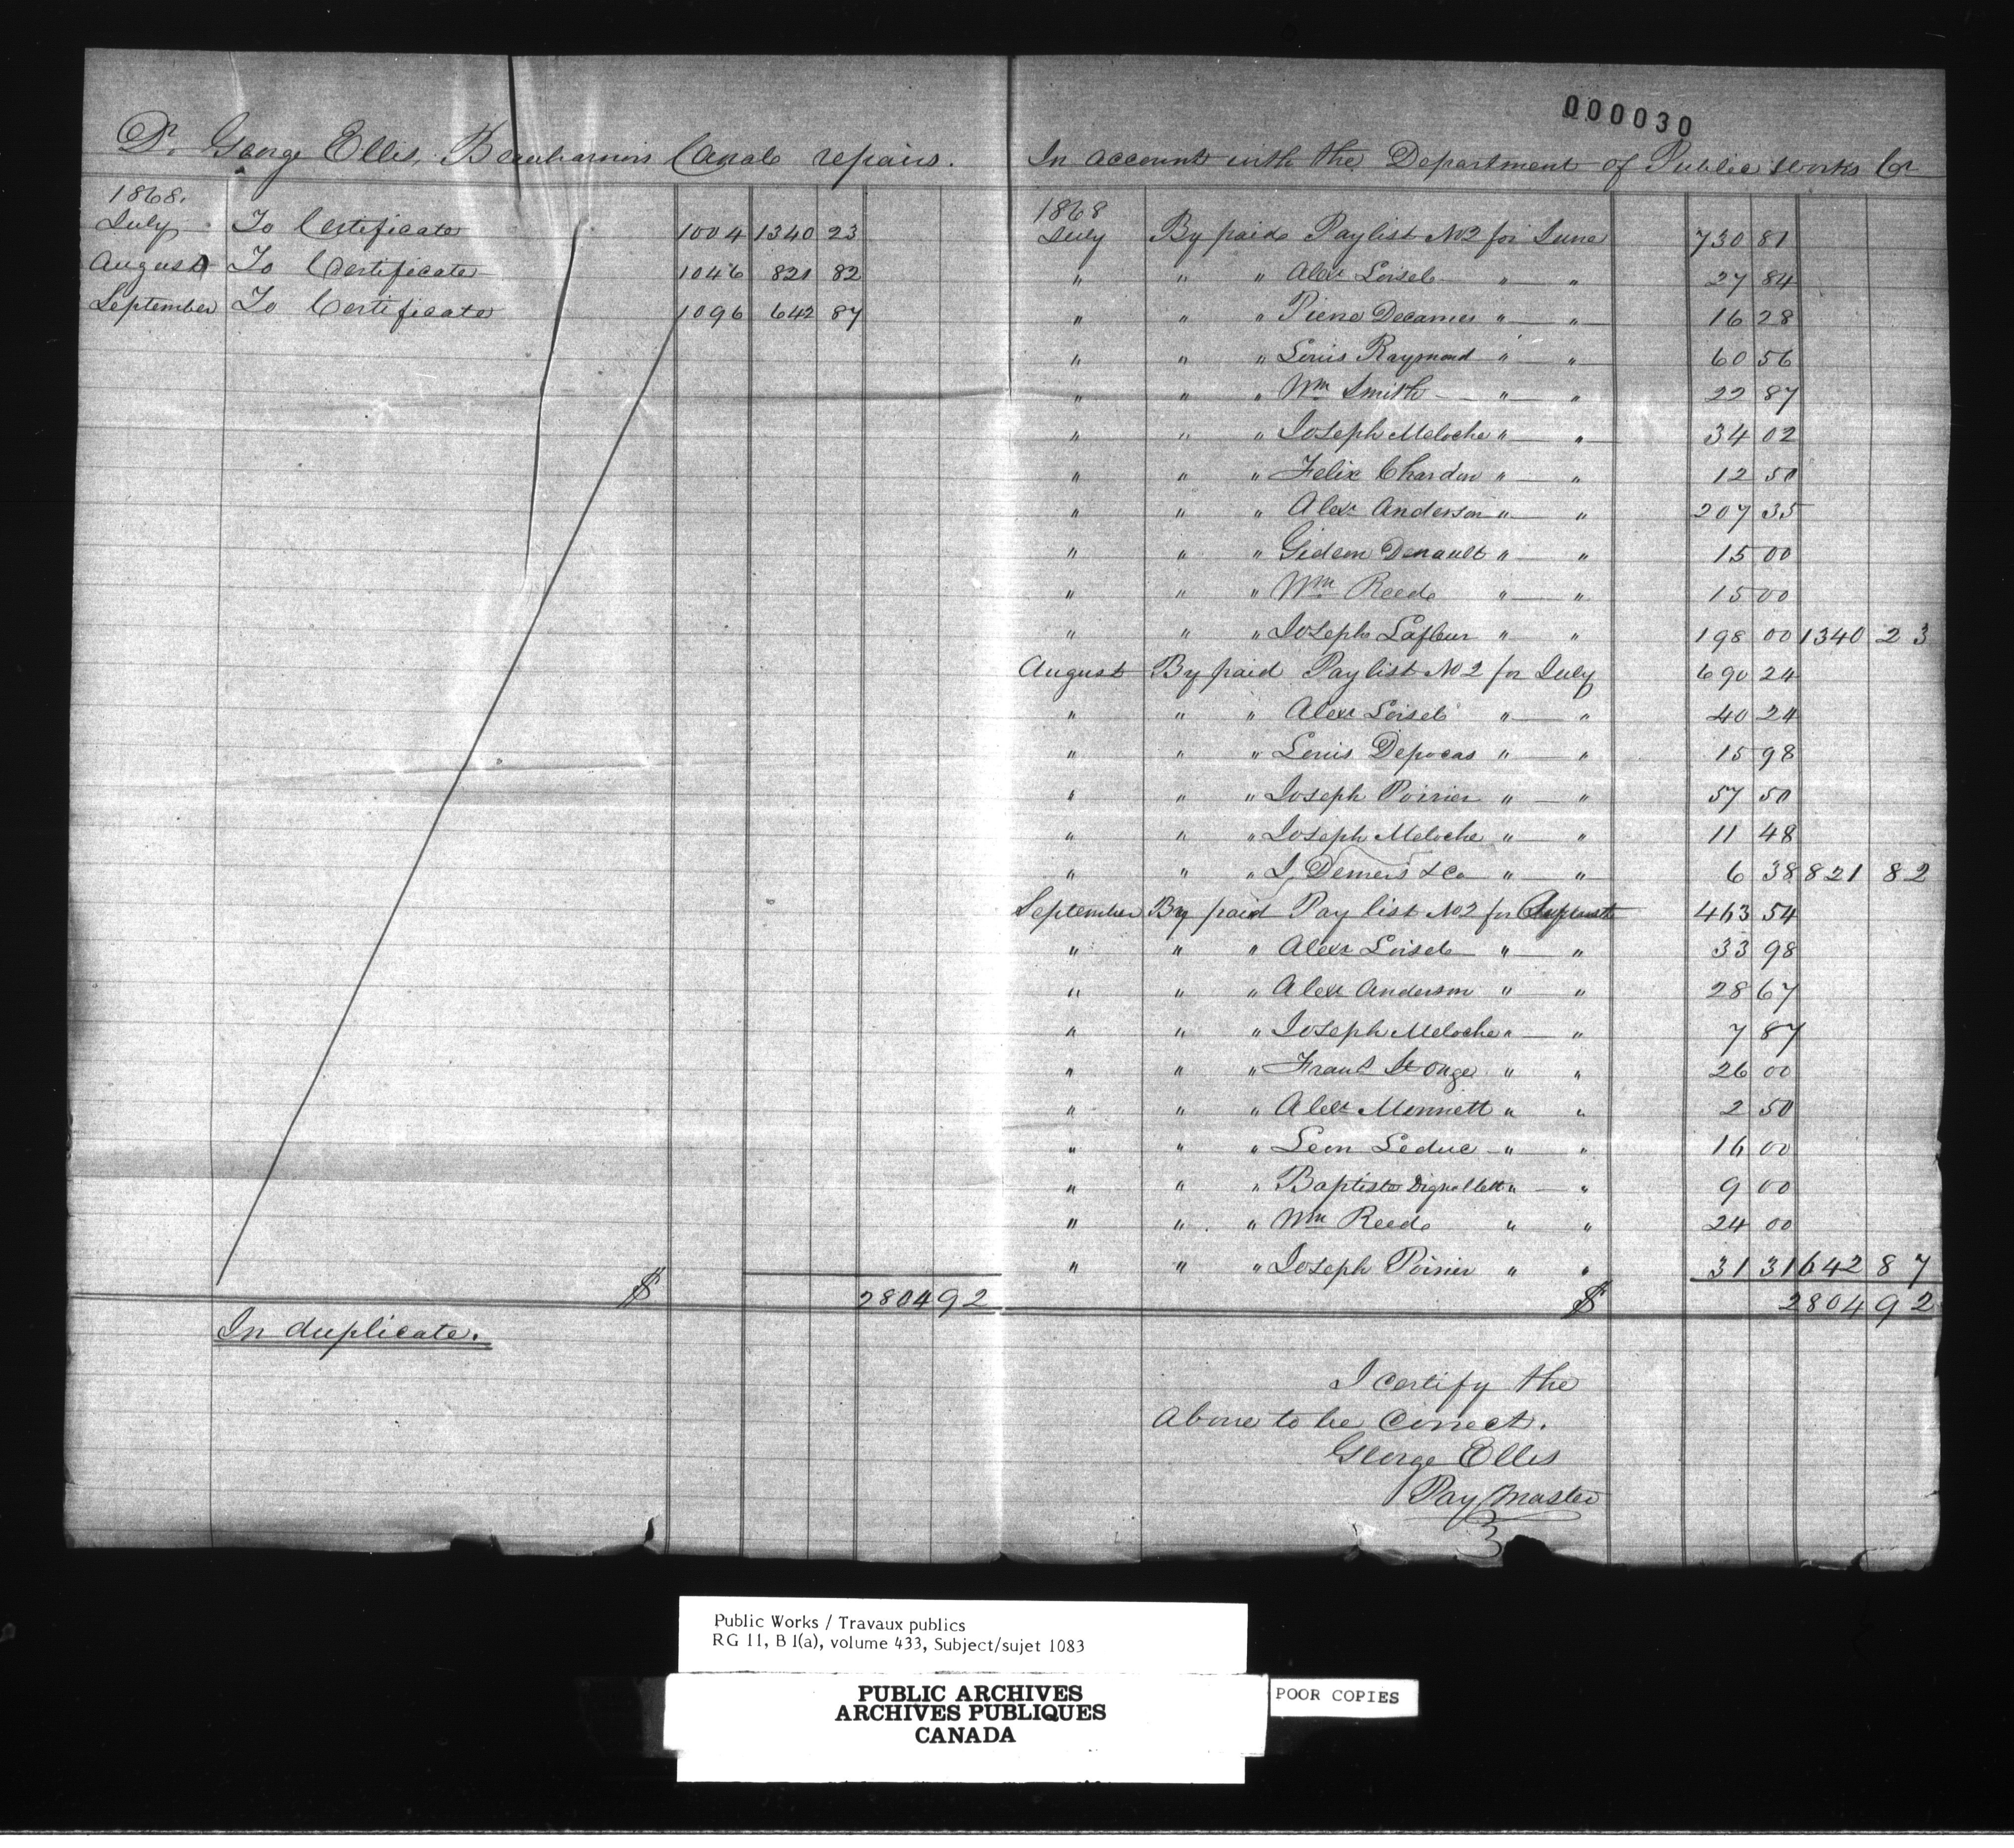 000030
Dr. George Ellis, Beauharnois Canal repairs.
1868.
July To Certificate 1004 1340 23
August To Certificate 1046 821 82
September To Certificate 1096 642 87
$ 2804 92
In duplicate.
In account with the Department of Public Works Cr
1868
July By paid Pay list No 2 for June 730 81
" " " Alexr Loisel " " 27 84
" " " Pierre " " 16 28
" " " Louis Raymond " " 60 56
" " " Wm Smith " " 22 87
" " " Joseph Meloche " " 34 02
" " " Felix Chardon " " 12 50
" " " Alexr Anderson " " 207 35
" " " Gideon Denault " " 15 00
" " " Wm Reed " " 15 00
" " " Joseph Lafleur " " 198 00 1340 23
August By paid Pay list No 2 for July 690 24
" " " Alexr Loisel " " 40 24
" " " Louis Depocas " " 15 98
" " " Joseph Poirier " " 57 50
" " " Joseph Meloche " " 11 48
" " " J. Demers & Co " " 6 38 821 82
September By paid Pay list No 2 for August 463 54
" " " Alexr Loisel " " 33 98
" " " Alexr Anderson " " 28 67
" " " Joseph Meloche " " 7 87
" " " St Onge " " 26 00
" " " Alexr Monnett " " 2 50
" " " Leon Leduc " " 16 00
" " " Baptiste " " 9 00
" " " Wm Reed " " 24 00
" " " Joseph Poirier " " 31 31 642 87
$ 2804 92
I certify the
above to be Correct.
George Ellis
Pay Master
3
Public Works / Travaux publics
RG 11, B 1(a), volume 433, Subject/sujet 1083
PUBLIC ARCHIVES
ARCHIVES PUBLIQUES
CANADA
POOR COPIES